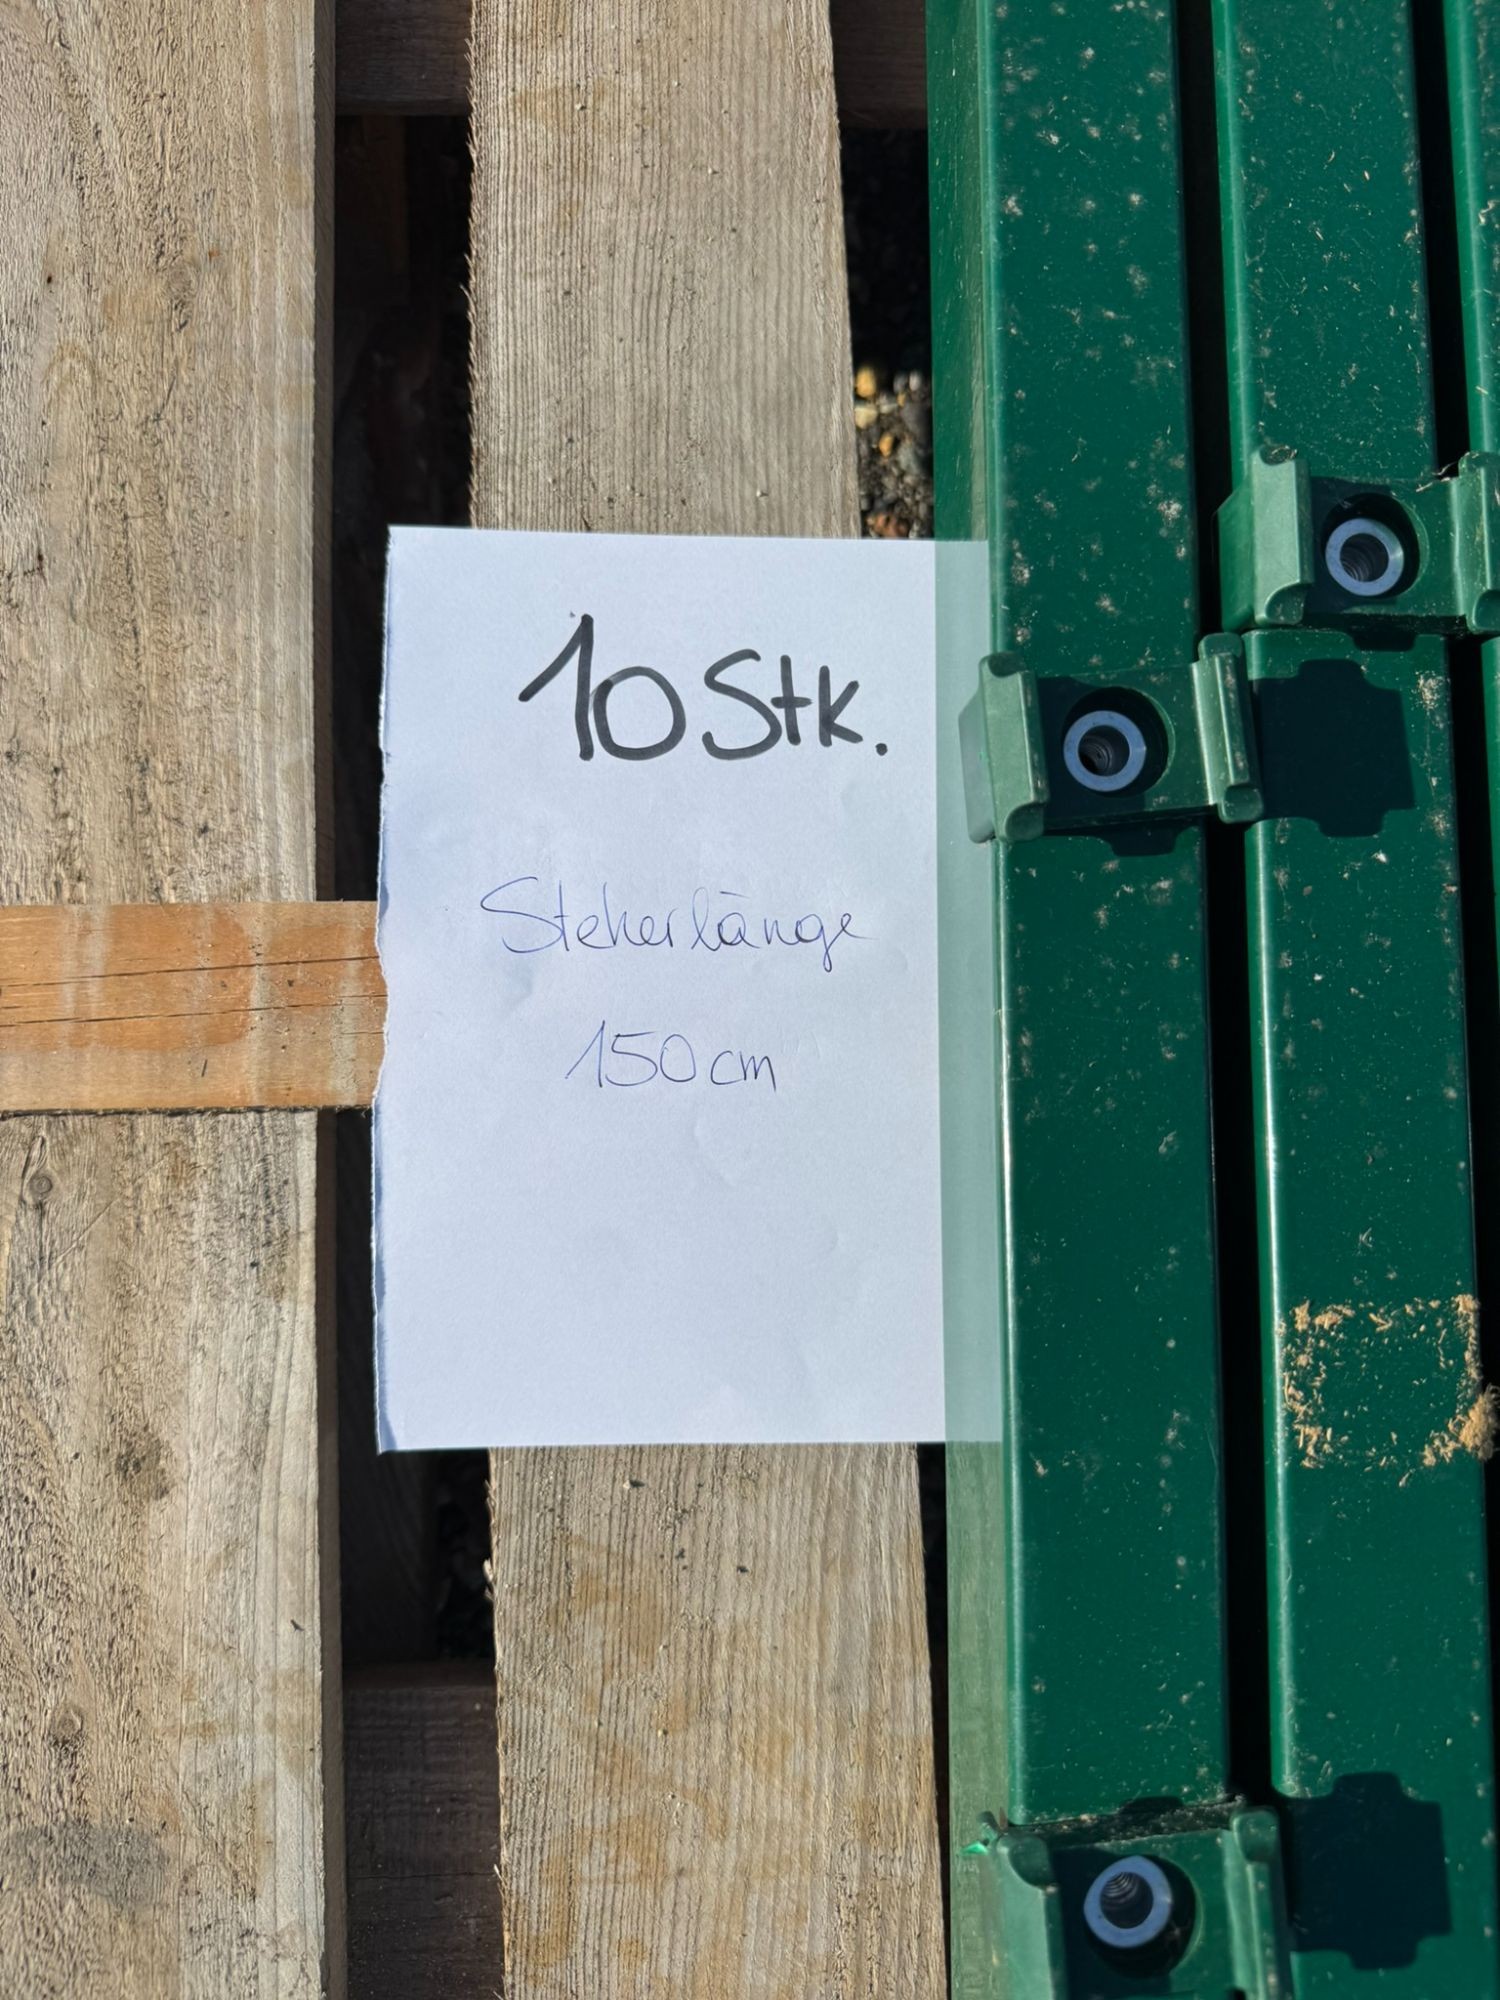 10 Stk.
Steherlänge
150 cm